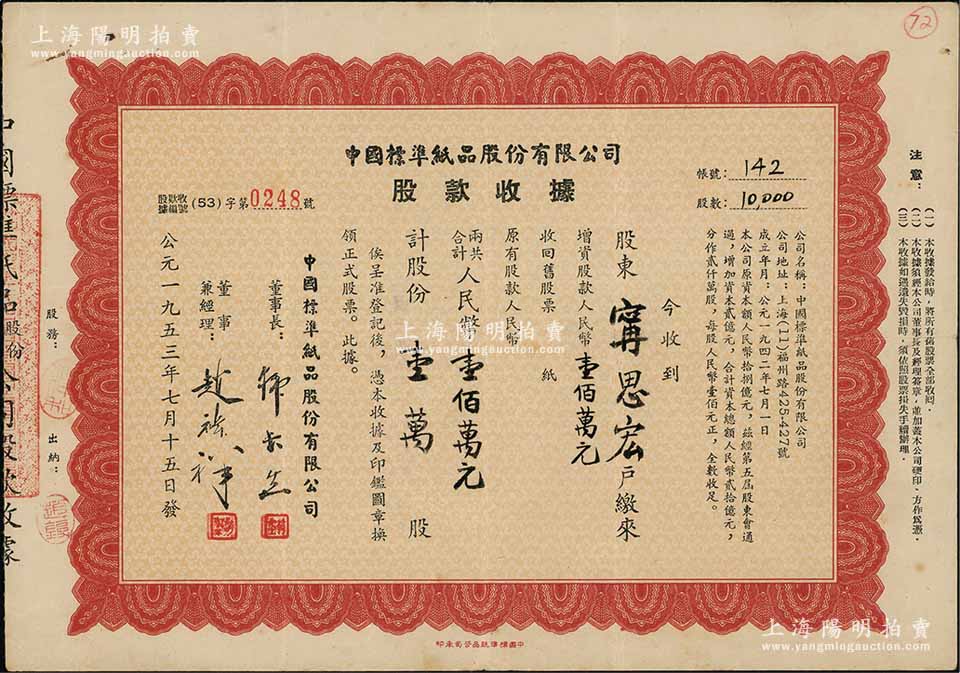 上海陽明拍賣
www.yangmingauction.com
72
中國標準紙品股份有限公司
股款收據
股款收據編號(53)字第0248號
帳號：142
股數：10,000
公司名稱：中國標準紙品股份有限公司
公司地址：上海(11)福州路425-427號
成立年月：公元一九四二年七月一日
本公司原資本額人民幣拾捌億元，茲經第五屆股東會通
過，增加資本貳億元，合計資本總額人民幣貳拾億元，
分作貳仟萬股，每股人民幣壹佰元正，全數收足。
今收到
股東甯思宏戶繳來
增資股款人民幣壹佰萬元
收回舊股票 紙
原有股款人民幣
兩共合計人民幣壹佰萬元
計股份壹萬股
俟呈准登記後，憑本收據及印鑑圖章換
領正式股票。此據。
中國標準紙品股份有限公司
董事長：
董事兼經理：
公元一九五三年七月十五日發
注意：
(一) 本收據發給時，將所有舊股票全部收回。
(二) 本收據須經本公司董事長及經理簽章，並加蓋本公司硬印，方作為憑。
(三) 本收據如遇遺失毀損時，須依照股票掛失手續辦理。
股務：
出納：
中國標準紙品股份公司股款收據
中國標準紙品公司承印
上海陽明拍賣
www.yangmingauction.com
上海陽明拍賣
www.yangmingauction.com